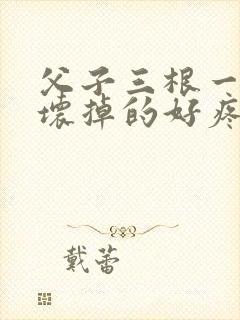 父子三根一
壞掉的好疼
戴蕾